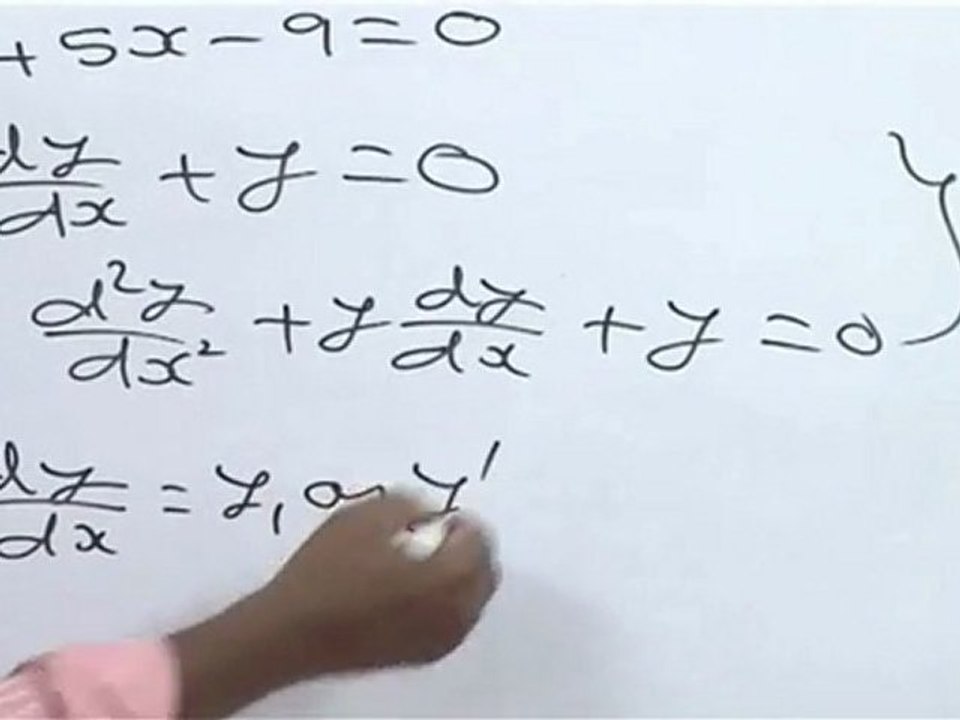 + 5x - 9 = 0
dy/dx + y = 0
d²y/dx² + y dy/dx + y = 0
dy/dx = y₁ or y'